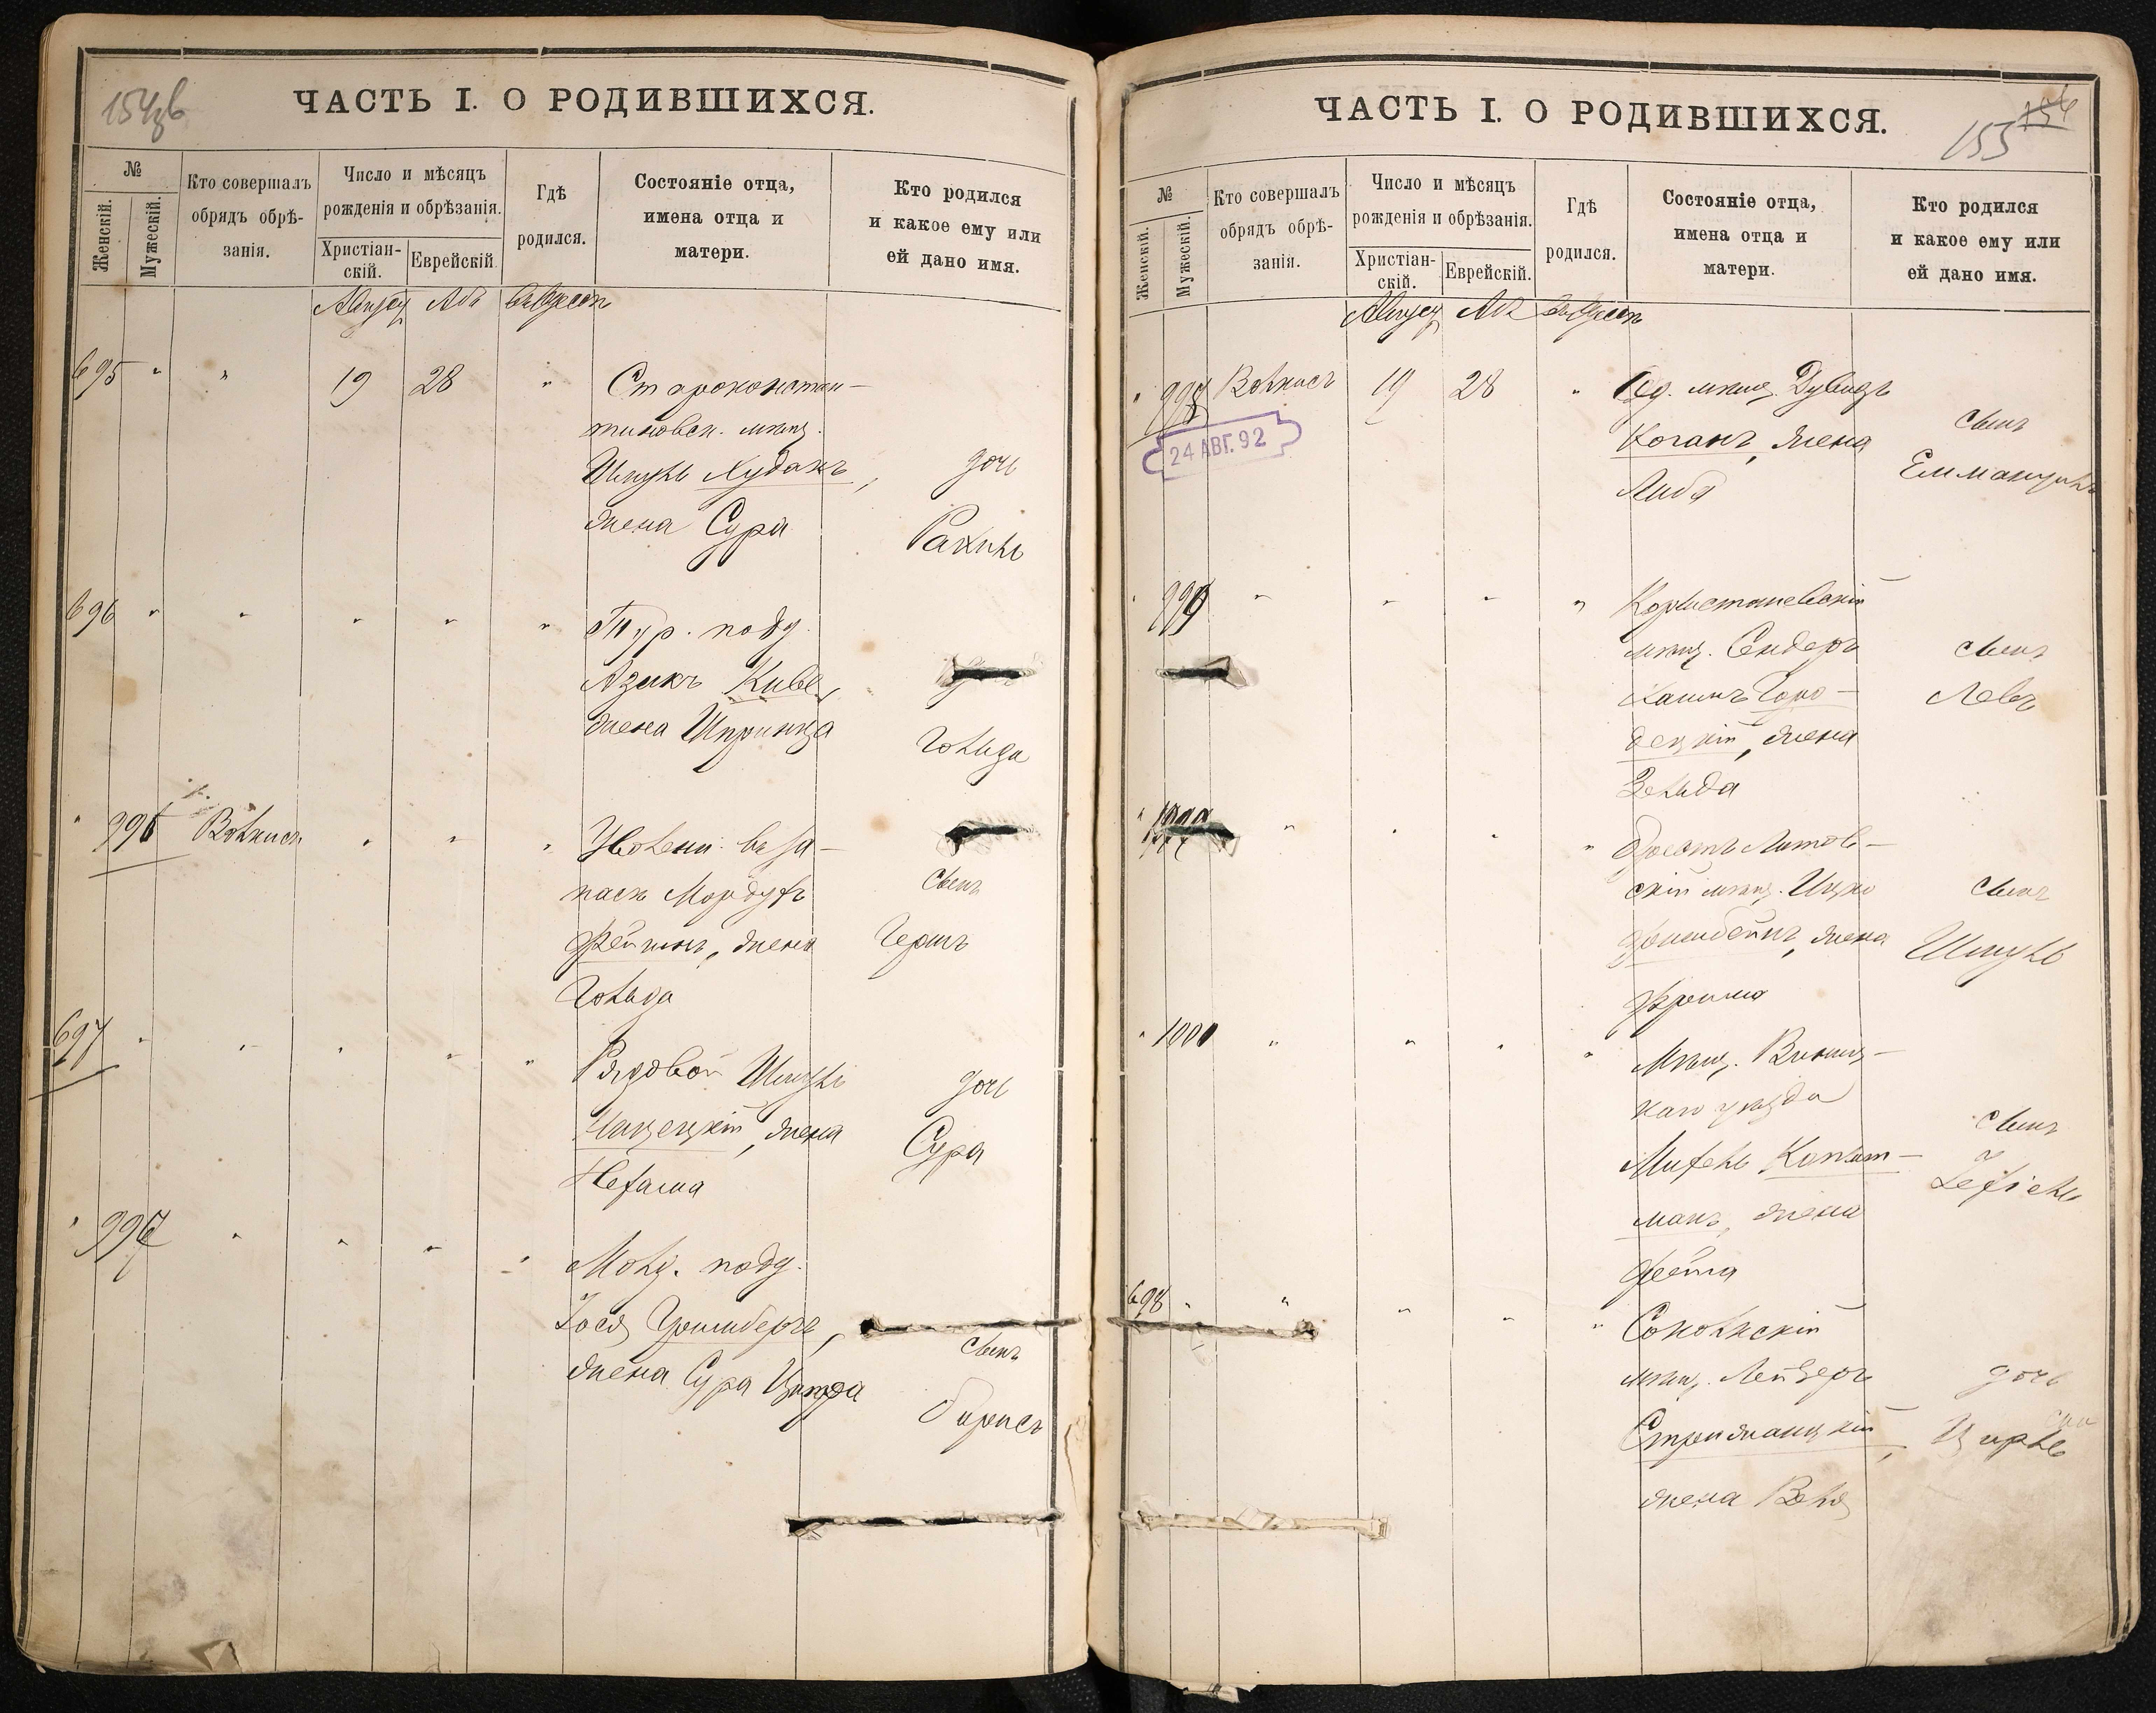 154об
ЧАСТЬ I. О РОДИВШИХСЯ.
№
Женскій.
Мужескій.
Кто совершалъ
обрядъ обрѣ-
занія.
Число и мѣсяцъ
рожденія и обрѣзанія.
Христіан-
скій.
Еврейскій
Гдѣ
родился.
Состояніе отца,
имена отца и
матери.
Кто родился
и какое ему или
ей дано имя.
Августъ Абъ
695 " " 19 28 " Староконстан-
тиновск. мѣщ.
Шмуль Худакъ,
жена Сура
дочь
Рахиль
696 " " " " " Тур. подд.
Азикъ
жена Шпринца
Гольда
996 Вольнисъ " " " Уволен. въ за-
пасъ Мордухъ
жена
Гольда
сынъ
Герш
697 " " " " " Рядовой Шмуль
жена
Нехама
дочь
Сура
" 997 " " " " Молд. подд.
Іосъ Гринбергъ,
жена Сура
сынъ
Борисъ
155 154
ЧАСТЬ I. О РОДИВШИХСЯ.
№
Женскій.
Мужескій.
Кто совершалъ
обрядъ обрѣ-
занія.
Число и мѣсяцъ
рожденія и обрѣзанія.
Христіан-
скій.
Еврейскій.
Гдѣ
родился.
Состояніе отца,
имена отца и
матери.
Кто родился
и какое ему или
ей дано имя.
Августъ Абъ
" 998 Вольнисъ 19 28 " Од. мѣщ. Дувидъ
Коганъ, жена
Либа
сынъ
Еммануилъ
24 АВГ. 92
" 999 " " " "
мѣщ. Сендеръ
Хаимъ Горо-
децкій, жена
Зельда
сынъ
Левъ
" 1000 " " " " Брестъ Литов-
скій мѣщ. Ицко
жена
Фрейма
сынъ
Шмуль
" 1001 " " " " Мѣщ. Винниц-
каго уѣзда
Михель
манъ, жена
Фейга
сынъ
Іехіель
698 " " " " " Сокольскій
мѣщ. Лейзеръ
жена Веля
дочь
Цирль